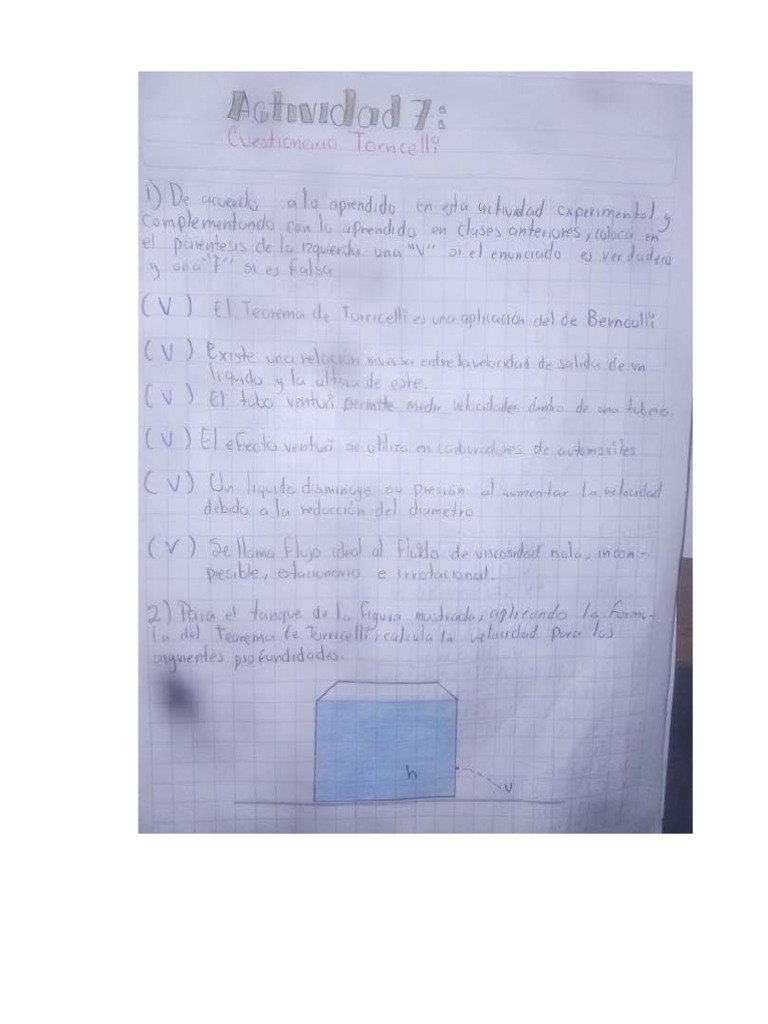 Actividad 7:
Cuestionario Torricelli
1) De acuerdo a lo aprendido en esta actividad experimental y
complementando con lo aprendido en clases anteriores, coloca en
el paréntesis de la izquierda una "V" si el enunciado es verdadero
y una "F" si es falsa
(V) El Teorema de Torricelli es una aplicación del de Bernoulli
(V) Existe una relación inversa entre la velocidad de salida de un
líquido y la altura de este.
(V) El tubo venturi permite medir velocidades dentro de una tubería
(V) El efecto venturi se utiliza en carburadores de automóviles
(V) Un líquido disminuye su presión al aumentar la velocidad
debido a la reducción del diametro
(V) Se llama flujo ideal al fluido de viscosidad nula, incom-
presible, estacionario e irrotacional.
2) Para el tanque de la figura mostrada, aplicando la formu-
la del Teorema de Torricelli, calcula la velocidad para las
siguientes profundidades.
h
v